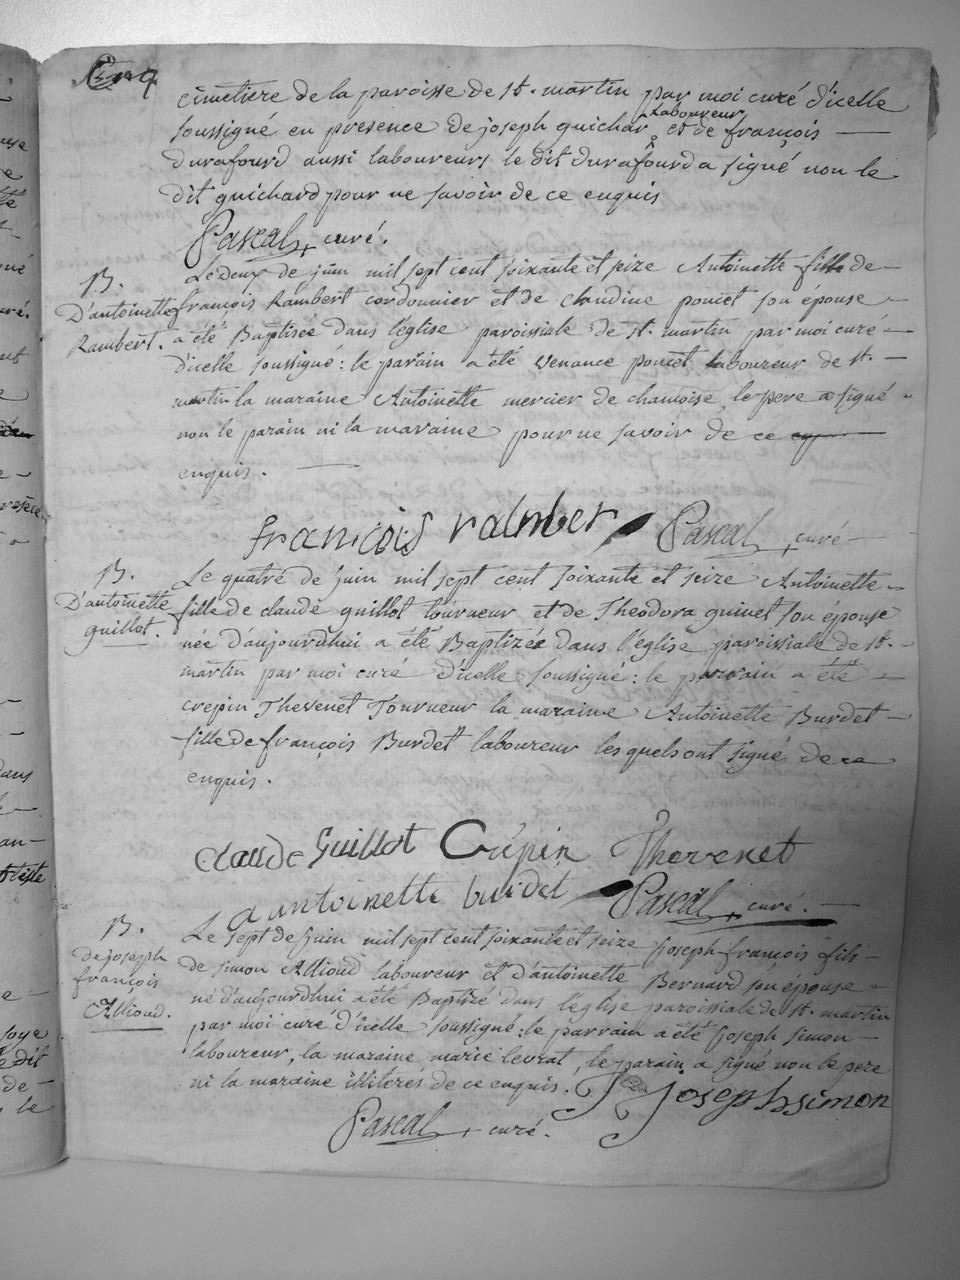 Cinq
cimetiere de la paroisse de st. martin par moi curé d'icelle
soussigné en presence de joseph guichar, Laboureur et de françois
durafourd aussi laboureurs le dit durafourd a signé non le
dit guichard pour ne savoir de ce enquis
Pascal curé.
Le deux de juin mil sept cent soixante et seize Antoinette fille de
B.
D'antoinette
Rambert.
françois Rambert cordonnier et de claudine poncet son épouse
a été Baptisée dans l'église paroissiale de st. martin par moi curé
d'icelle soussigné : le parain a été venance poncet laboureur de st.
martin la maraine Antoinette mercier de chanoise le pere a signé
non le parain ni la maraine pour ne savoir de ce
enquis.
françois ralmber Pascal curé
B.
D'antoinette
guillot.
Le quatre de juin mil sept cent soixante et seize Antoinette
fille de claude guillot tourneur et de Theodora guinet son épouse
née d'aujourdhui a été Baptizée dans l'église paroissiale de st.
martin par moi curé d'icelle soussigné : le parrain a été
crepin Thevenet Tourneur la maraine Antoinette Burdet
fille de françois Burdet laboureur les quels ont signé de ce
enquis.
claude Guillot Crépin Thevenet
antoinette burdet Pascal curé.
B.
de joseph
françois
Allioud.
Le sept de juin mil sept cent soixante et seize joseph françois fils
de simon Allioud laboureur et d'antoinette Bernard son épouse
né d'aujourdhui a été Baptizé dans l'église paroissiale de st. martin
par moi curé d'icelle soussigné : le parrain a été joseph simon
laboureur, la maraine marie levrat, le parain a signé non le pere
ni la maraine illiterés de ce enquis.
joseph simon
Pascal curé.